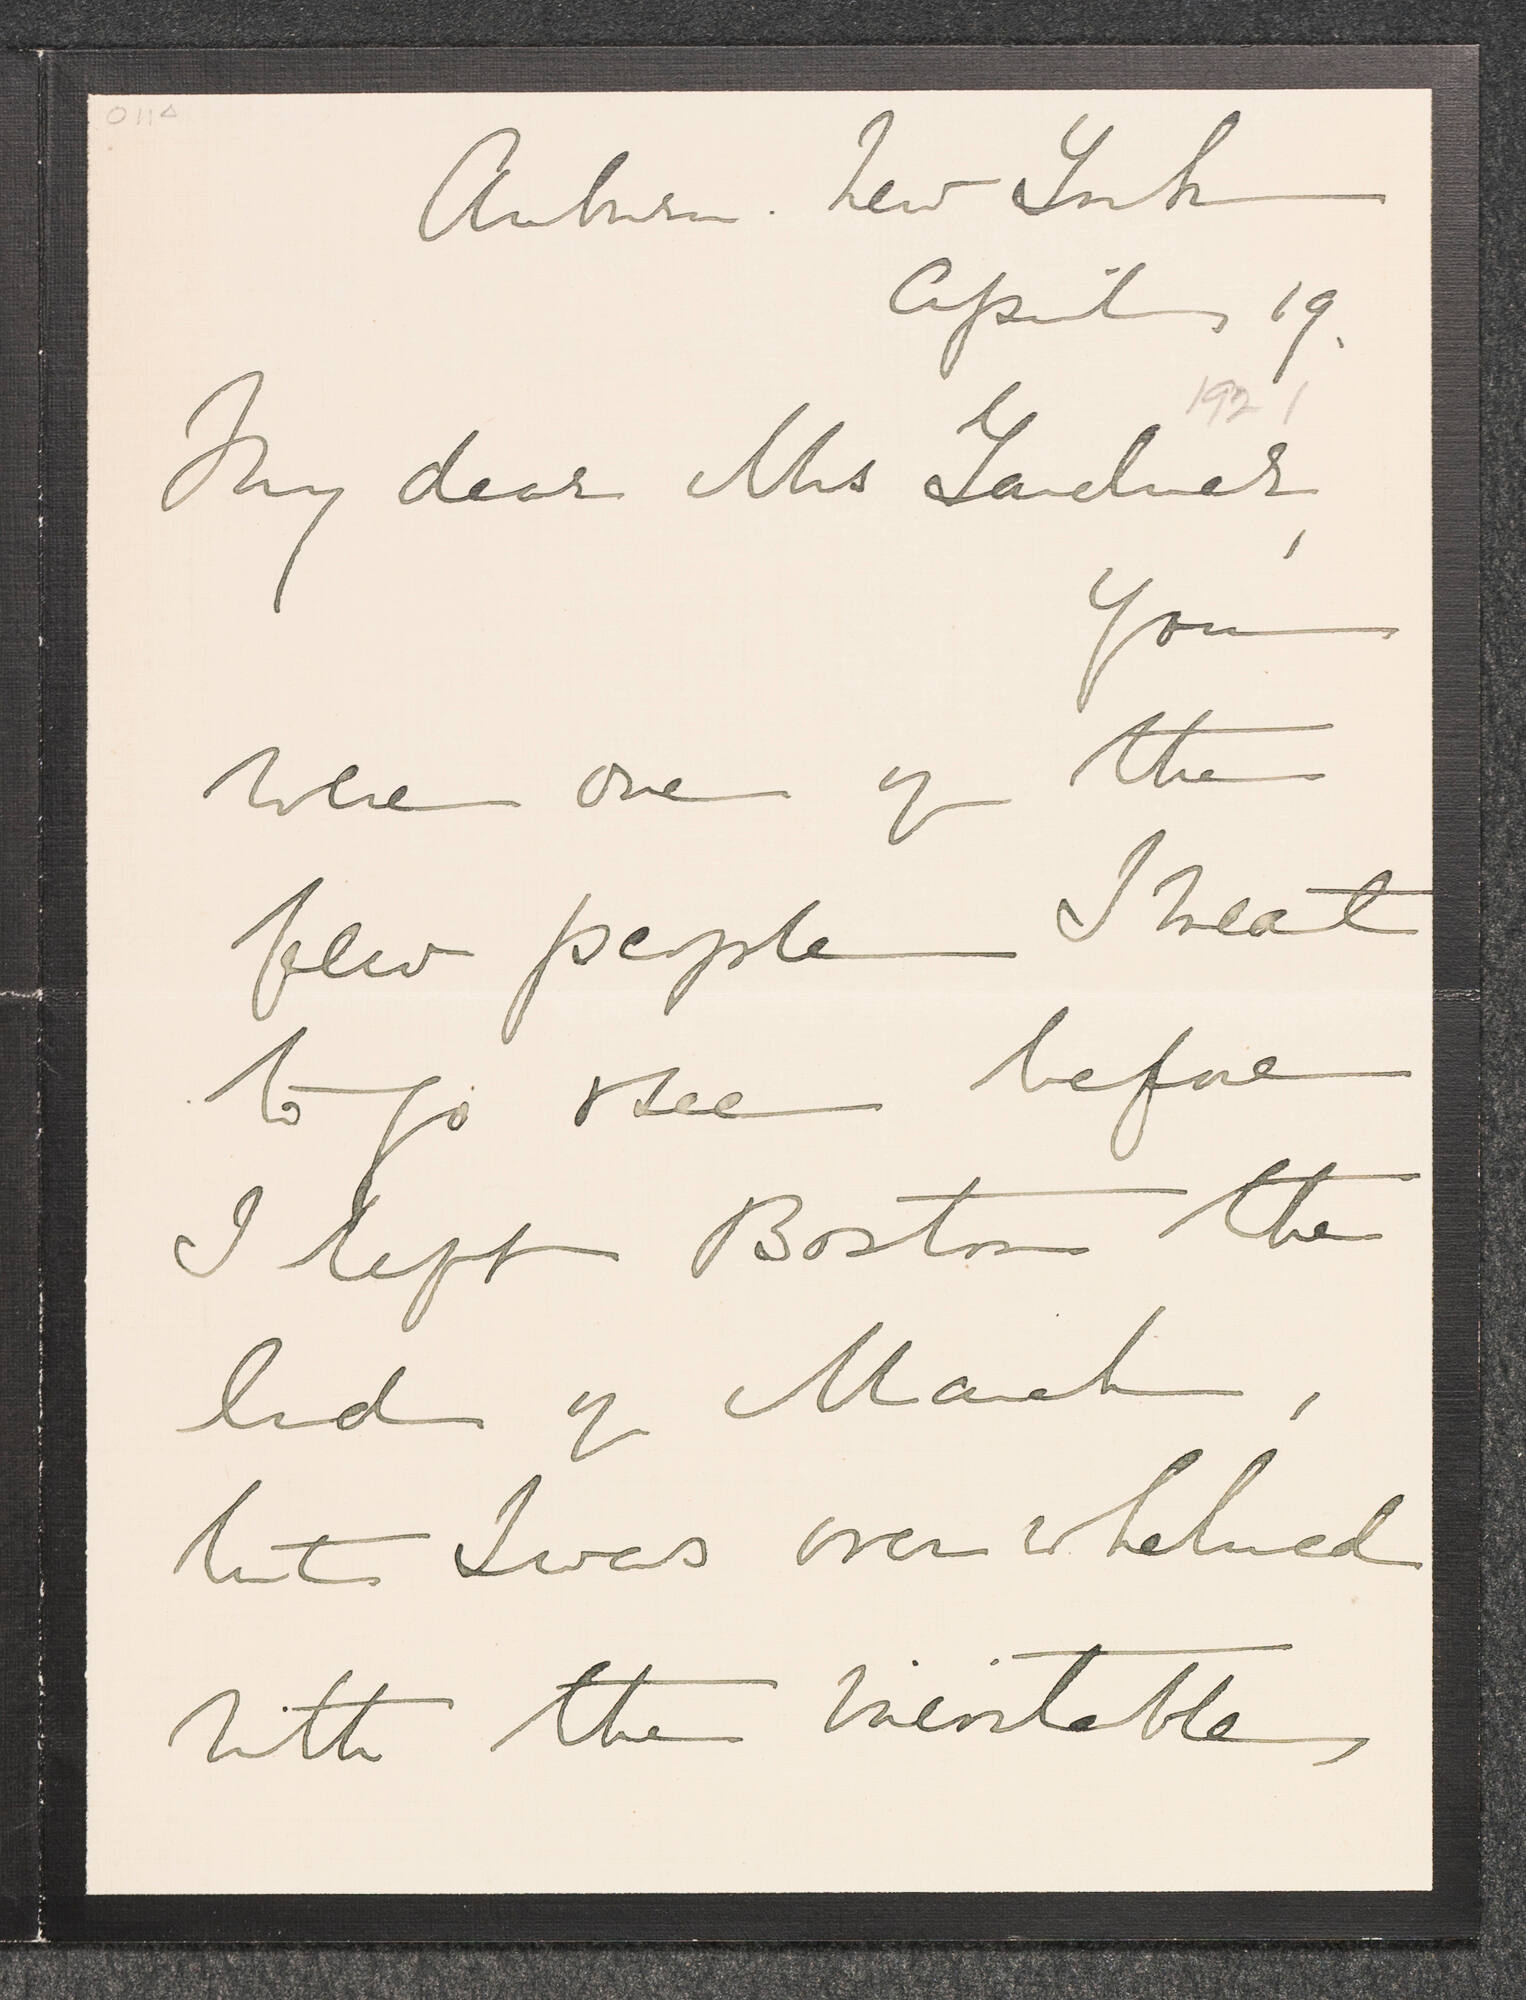 Auburn. New York
April, 19.
1921
My dear Mrs Gardner,
You
were one of the
few people I meant
to go & see before
I left Boston the
end of March,
but I was overwhelmed
with the inevitable,